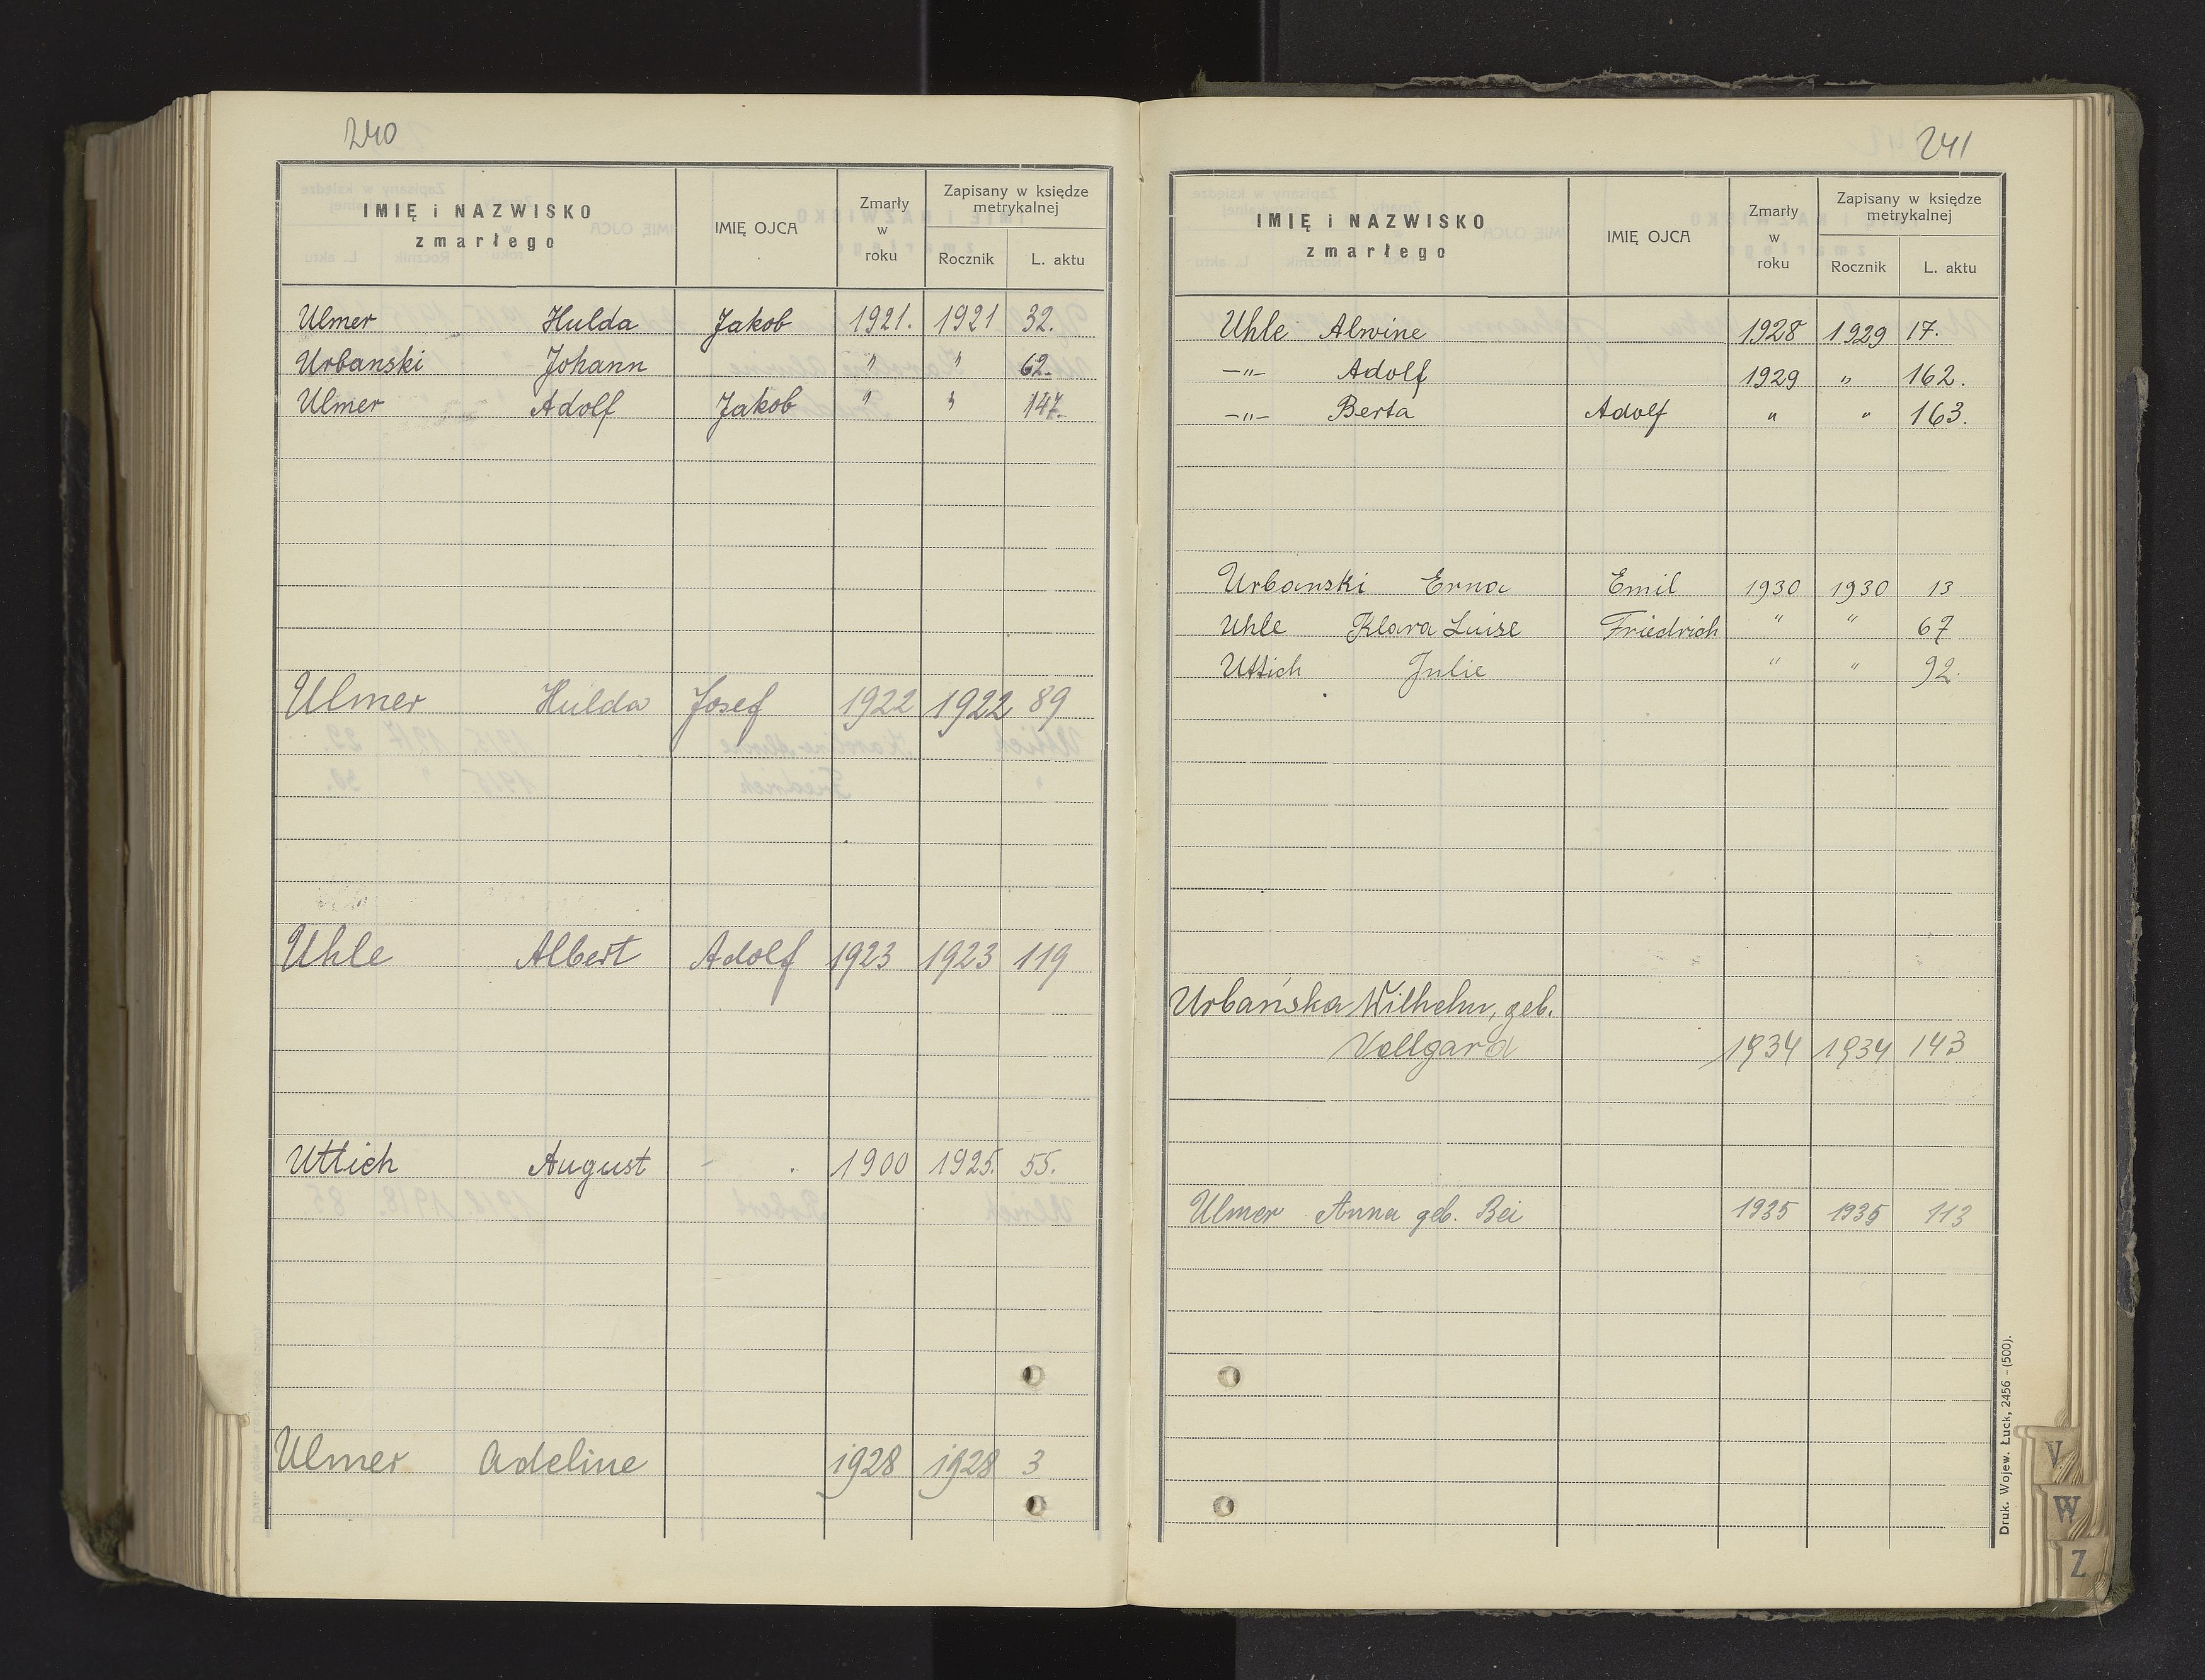 240
IMIĘ i NAZWISKO zmarłego IMIĘ OJCA Zmarły w roku Zapisany w księdze metrykalnej Rocznik L. aktu
Ulmer Hulda Jakob 1921. 1921 32.
Urbanski Johann " " 62.
Ulmer Adolf Jakob " " 147.
Ulmer Hulda Josef 1922 1922 89
Uhle Albert Adolf 1923 1923 119
Uttich August - . 1900 1925. 55.
Ulmer Adeline 1928 1928 3
241
IMIĘ i NAZWISKO zmarłego IMIĘ OJCA Zmarły w roku Zapisany w księdze metrykalnej Rocznik L. aktu
Uhle Alwine 1928 1929 17.
—"— Adolf 1929 " 162.
—"— Berta Adolf " " 163.
Urbanski Erna Emil 1930 1930 13
Uhle Klara Luise Friedrich " " 67
Uttich Julie " " 92.
Urbańska Wilhelm, geb.
Vollgard 1934 1934 143
Ulmer Anna geb. Bei 1935 1935 113
Druk. Wojew. Łuck, 2456 - (500).
V
W
Z